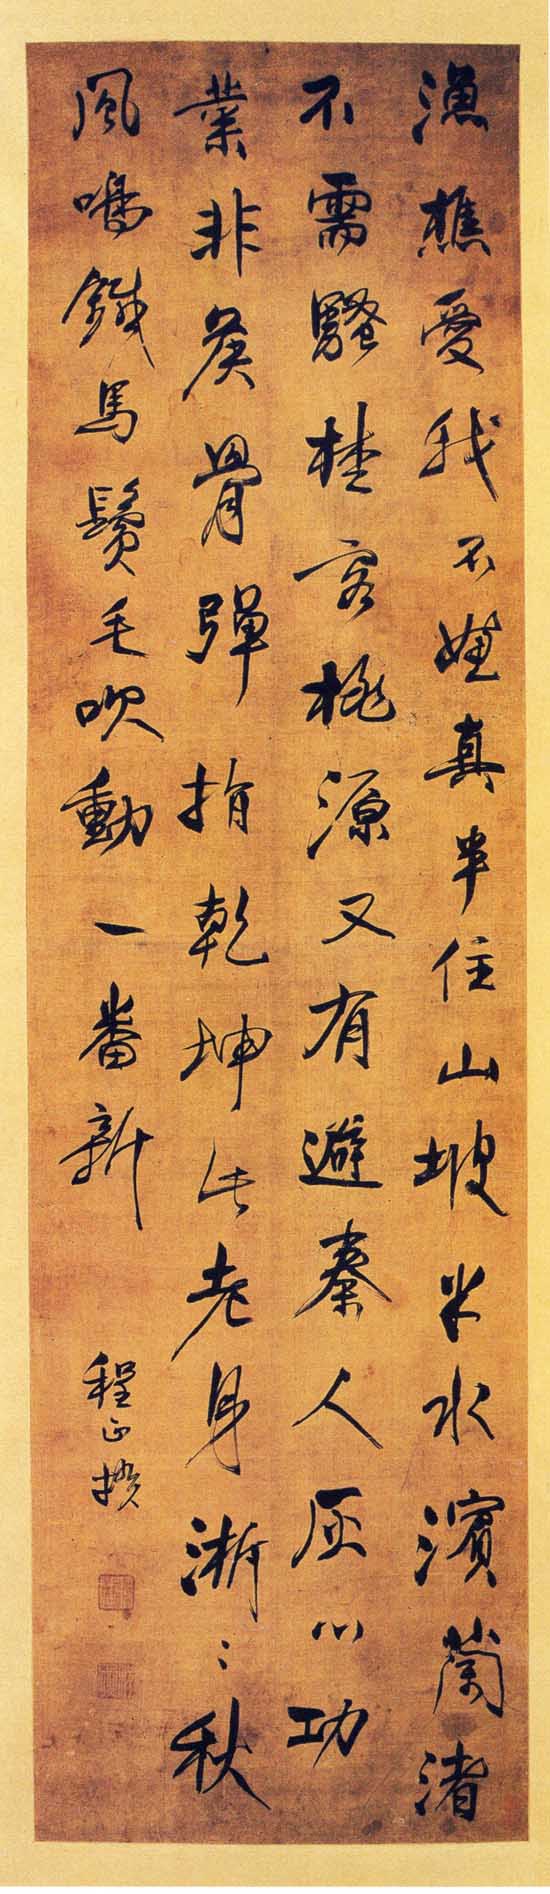 漁樵愛我不嫌真半住山坡半水濱蘭渚
不需騷楚客桃源又有避秦人灰心功
業非侯骨彈指乾坤此老身淅〻秋
風鳴鐵馬鬢毛吹動一番新
程正揆